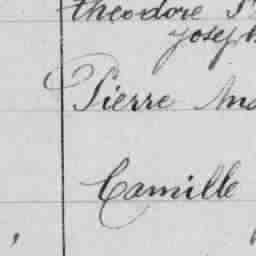 theodore
Joseph
Pierre
Camille